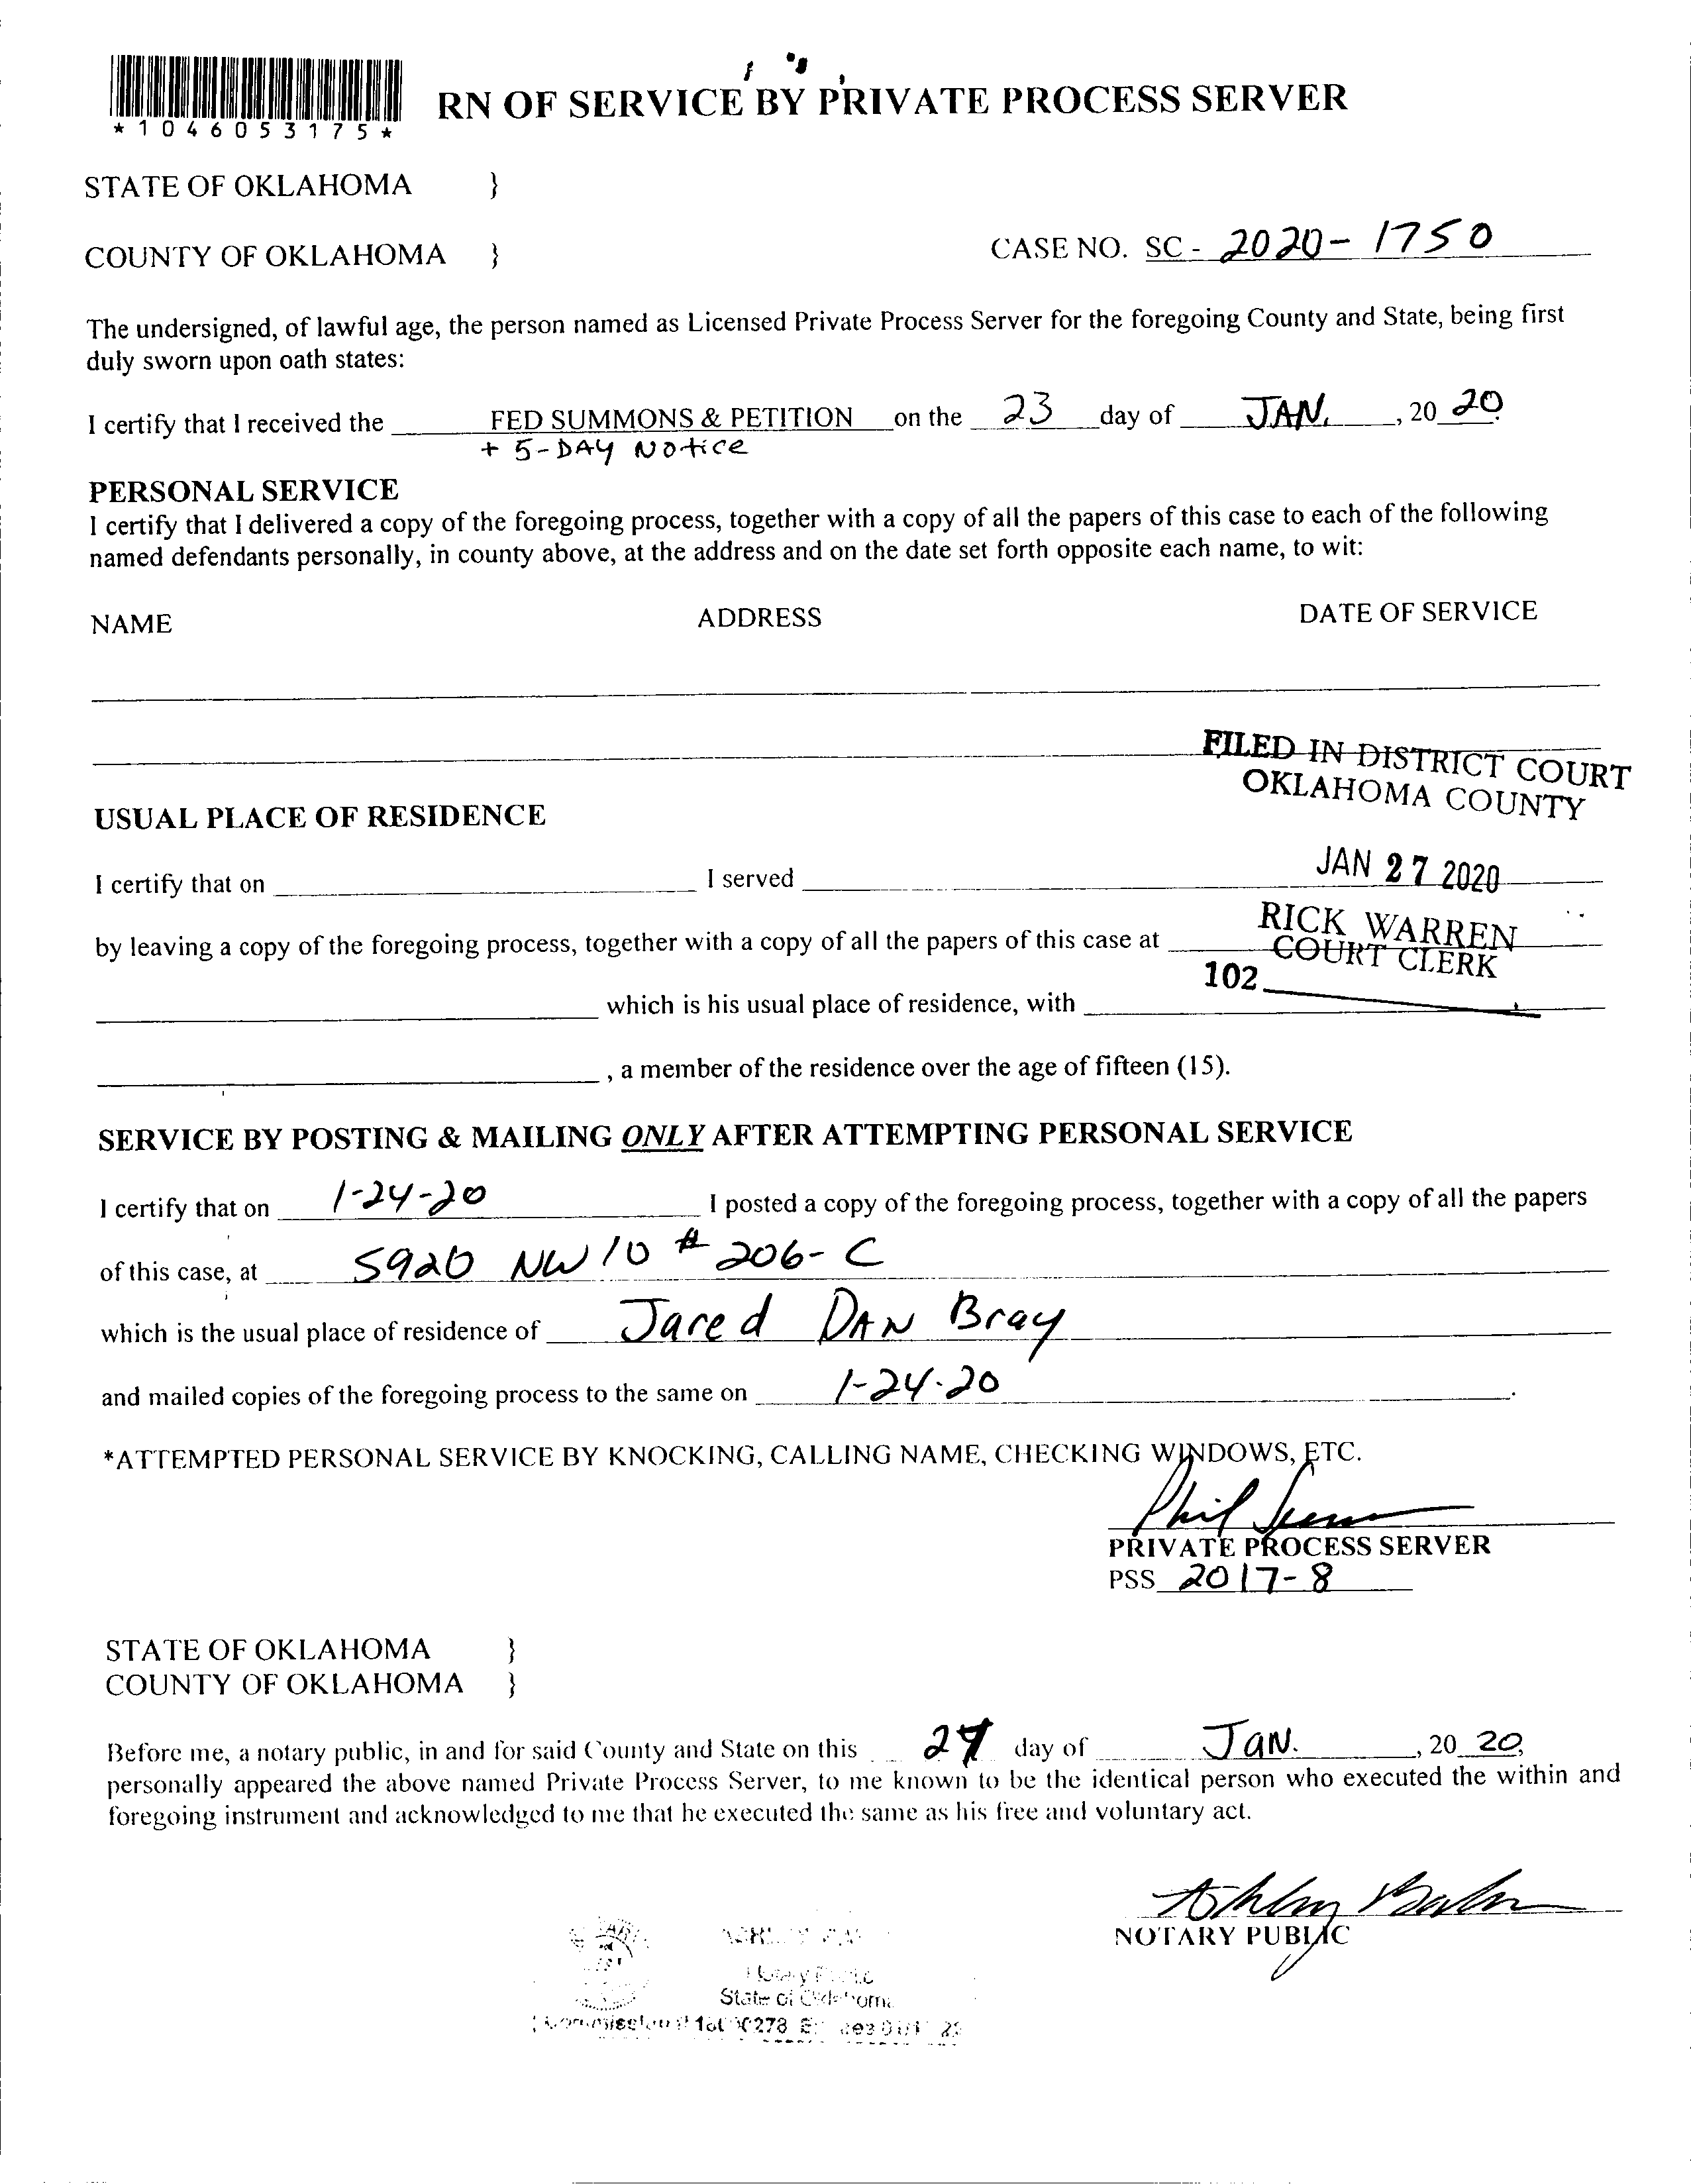 RN OF SERVICE BY PRIVATE PROCESS SERVER
*1046053175*
STATE OF OKLAHOMA }
COUNTY OF OKLAHOMA } CASE NO. SC - 2020-1750
The undersigned, of lawful age, the person named as Licensed Private Process Server for the foregoing County and State, being first
duly sworn upon oath states:
I certify that I received the FED SUMMONS & PETITION on the 23 day of JAN. , 20 20.
+ 5-DAY Notice
PERSONAL SERVICE
I certify that I delivered a copy of the foregoing process, together with a copy of all the papers of this case to each of the following
named defendants personally, in county above, at the address and on the date set forth opposite each name, to wit:
NAME ADDRESS DATE OF SERVICE
FILED IN DISTRICT COURT
OKLAHOMA COUNTY
USUAL PLACE OF RESIDENCE
JAN 27 2020
I certify that on I served
RICK WARREN
COURT CLERK
by leaving a copy of the foregoing process, together with a copy of all the papers of this case at
102
which is his usual place of residence, with
, a member of the residence over the age of fifteen (15).
SERVICE BY POSTING & MAILING ONLY AFTER ATTEMPTING PERSONAL SERVICE
I certify that on 1-24-20 I posted a copy of the foregoing process, together with a copy of all the papers
of this case, at 5920 NW 10 # 206-C
which is the usual place of residence of Jared DAN Bray
and mailed copies of the foregoing process to the same on 1-24-20 .
*ATTEMPTED PERSONAL SERVICE BY KNOCKING, CALLING NAME, CHECKING WINDOWS, ETC.
Phil
PRIVATE PROCESS SERVER
PSS 2017-8
STATE OF OKLAHOMA }
COUNTY OF OKLAHOMA }
Before me, a notary public, in and for said County and State on this 27 day of JaN. , 20 20,
personally appeared the above named Private Process Server, to me known to be the identical person who executed the within and
foregoing instrument and acknowledged to me that he executed the same as his free and voluntary act.
Ashley
NOTARY PUBLIC
Notary Public
State of Oklahoma
Commission #